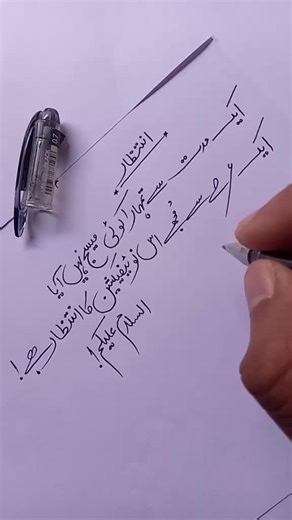 *انتظار*
ایک مدت سے تمہارا کوئی میسج نہیں آیا
ایک عرصے سے مجھے اس نوٹیفکیشن کا انتظار ہے!
السلام علیکم!
0.7